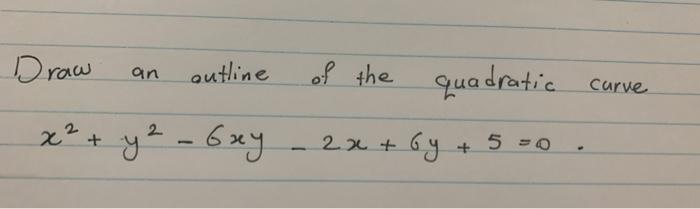 Draw an outline of the quadratic curve
x² + y² - 6xy - 2x + 6y + 5 = 0 .